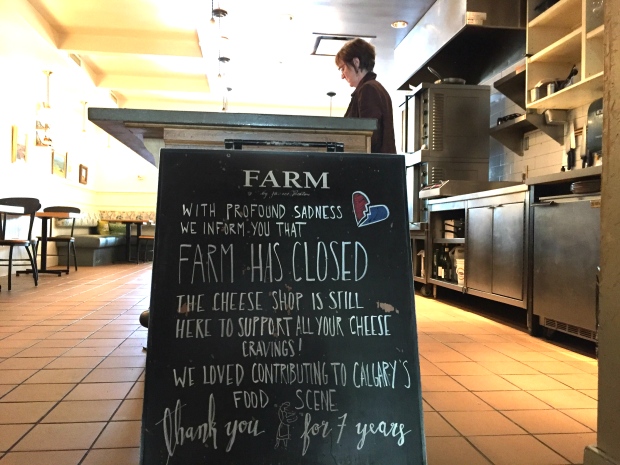 FARM
WITH PROFOUND SADNESS
WE INFORM YOU THAT
FARM HAS CLOSED
THE CHEESE SHOP IS STILL
HERE TO SUPPORT ALL YOUR CHEESE
CRAVINGS!
WE LOVED CONTRIBUTING TO CALGARY'S
FOOD SCENE
Thank you for 7 years